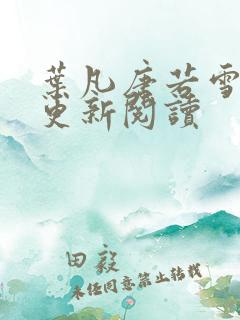 葉凡唐若雪
更新閱讀
田毅
未经同意禁止转载